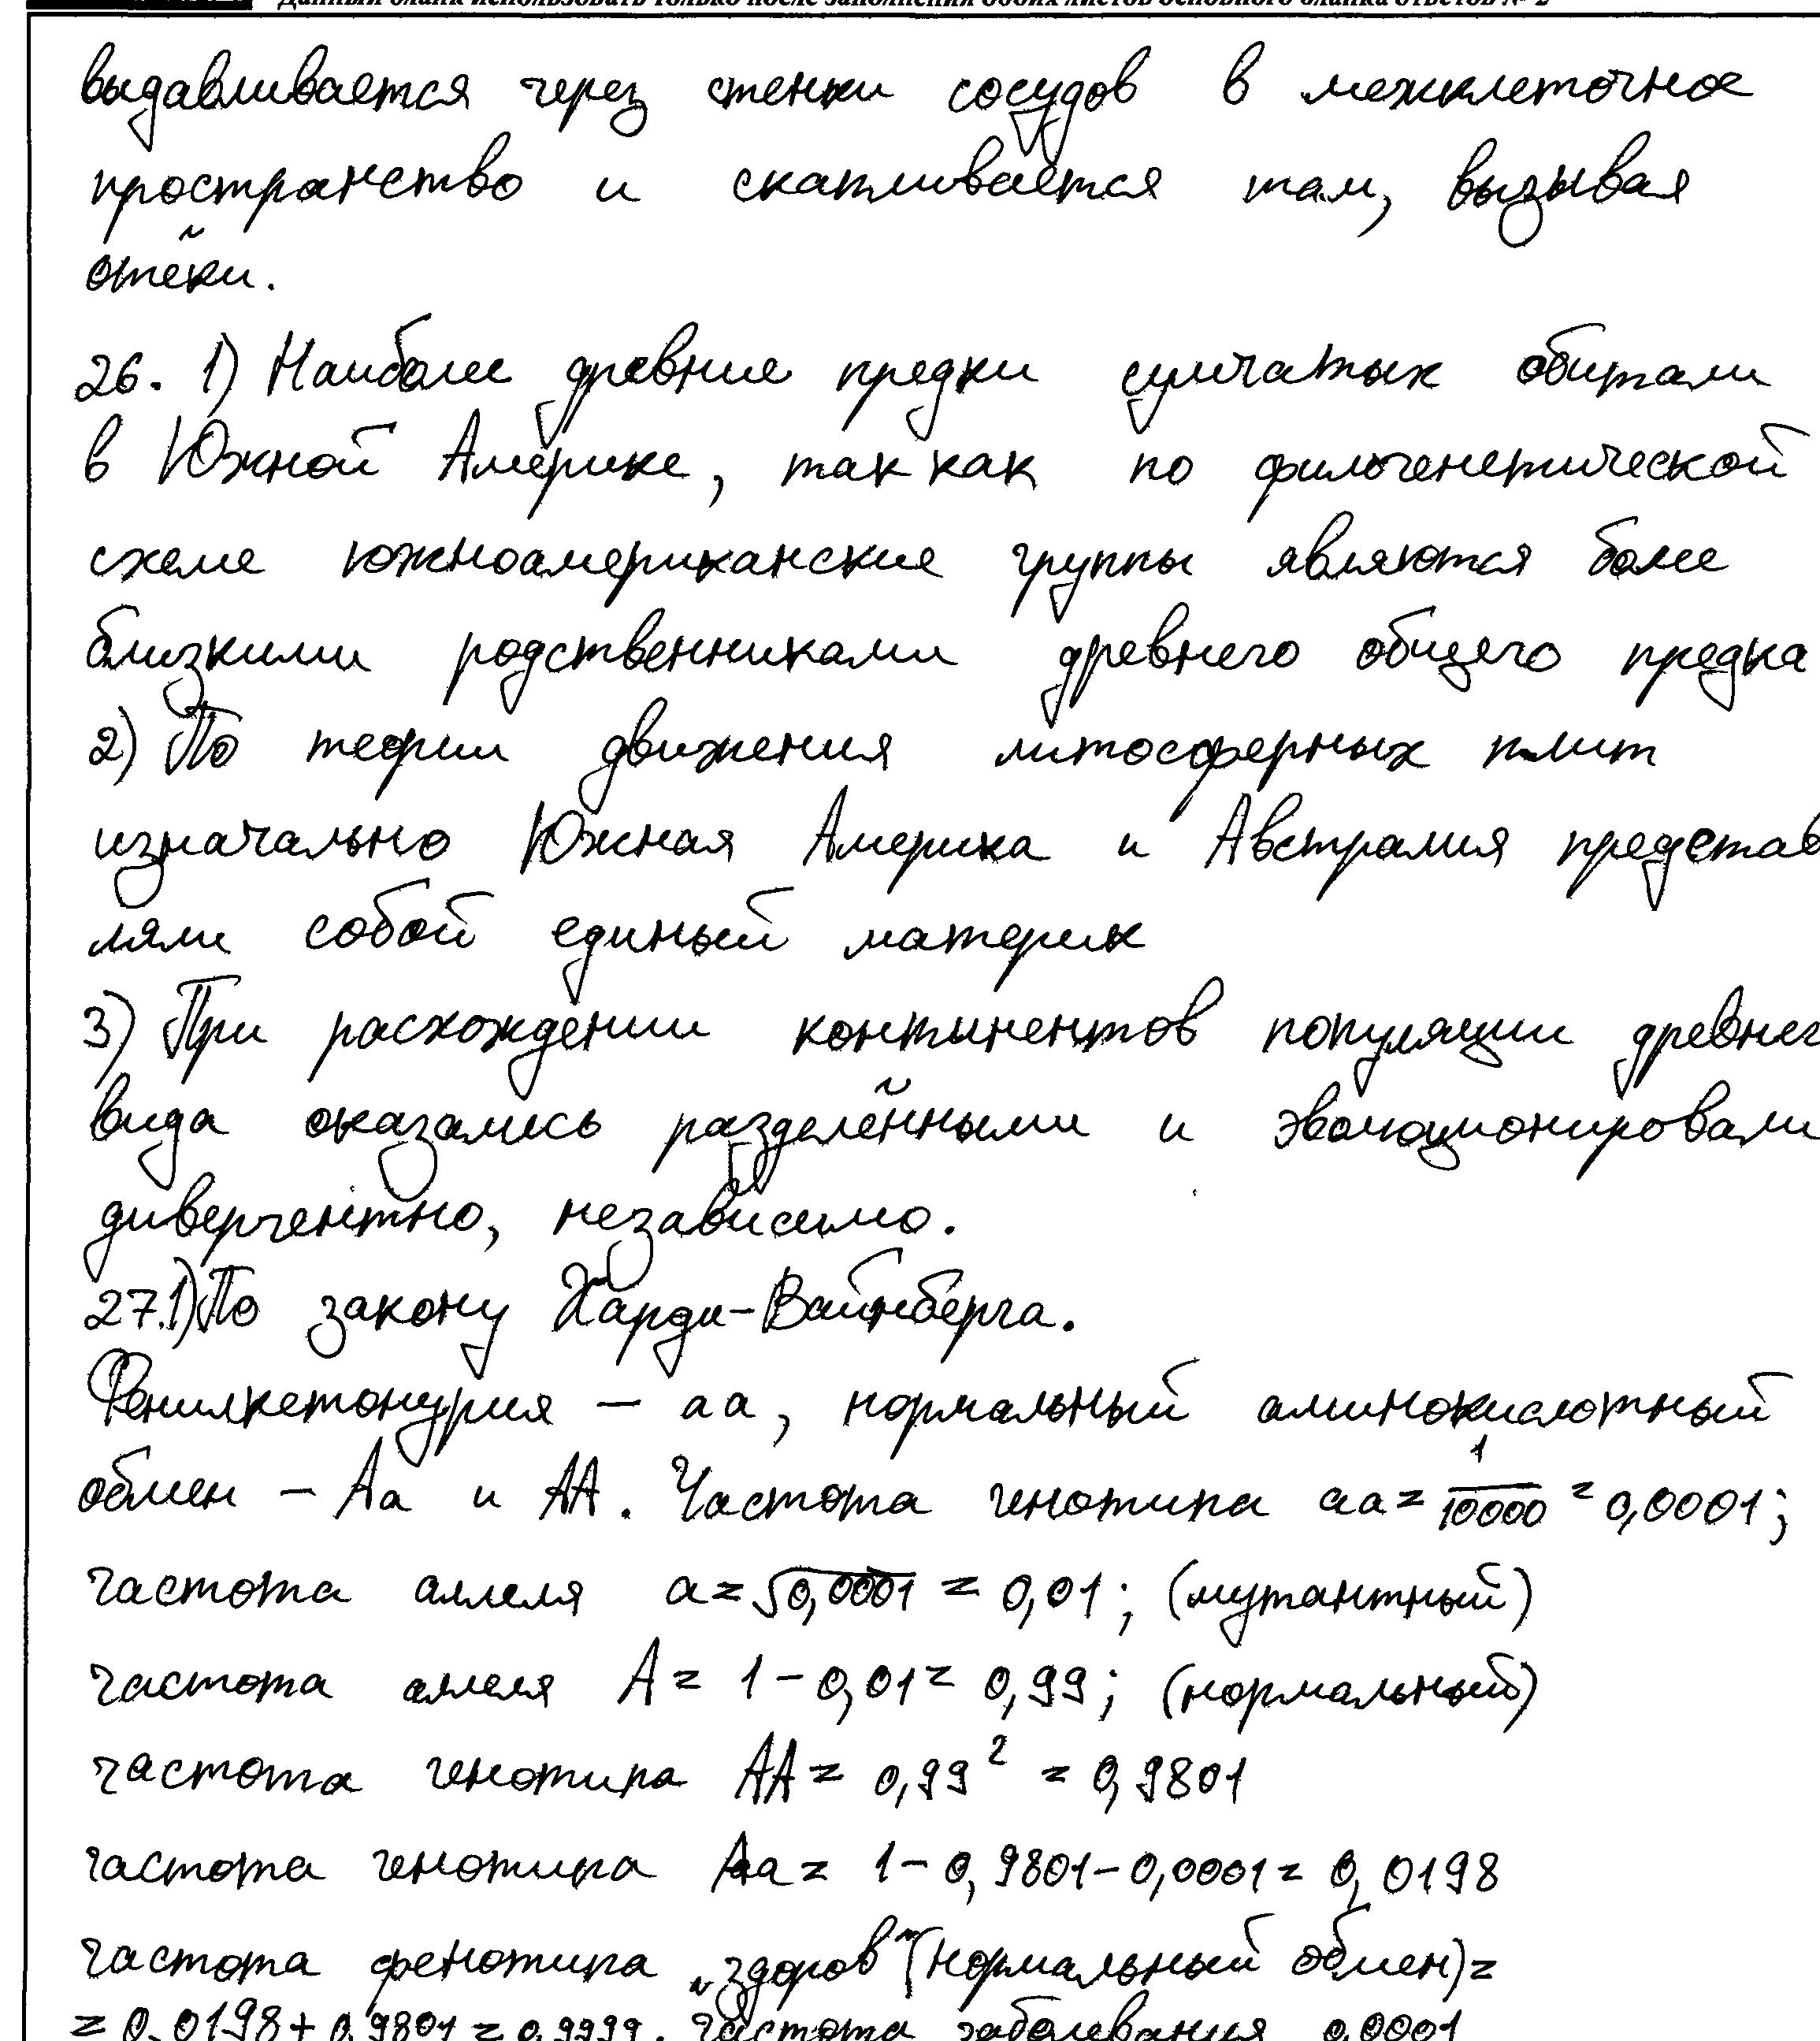 Данный бланк использовать только после заполнения обоих листов основного бланка ответов № 2
выдавливается через стенки сосудов в межклеточное
пространство и скапливается там, вызывая
отёки.
26. 1) Наиболее древние предки сумчатых обитали
в Южной Америке, так как по филогенетической
схеме южноамериканские группы являются более
близкими родственниками древнего общего предка
2) По теории движения литосферных плит
изначально Южная Америка и Австралия представ
ляли собой единый материк
3) При расхождении континентов популяции древнег
вида оказались разделёнными и эволюционировали
дивергентно, независимо.
27.1) По закону Харди-Вайнберга.
Фенилкетонурия – аа, нормальный аминокислотный
обмен – Аа и АА. Частота генотипа аа = 1/10000 = 0,0001;
частота аллеля а = √0,0001 = 0,01; (мутантный)
частота аллеля А = 1 – 0,01 = 0,99; (нормальный)
частота генотипа АА = 0,99² = 0,9801
частота генотипа Аа = 1 – 0,9801 – 0,0001 = 0,0198
частота фенотипа „здоров“ (нормальный обмен) =
= 0,0198 + 0,9801 = 0,9999. Частота заболевания 0,0001